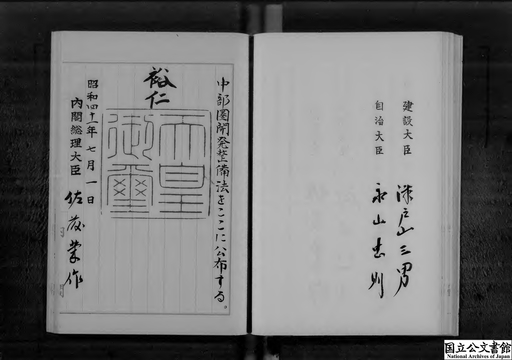 中部圏開発整備法をここに公布する。
裕仁
天皇
御璽
昭和四十一年七月一日
内閣総理大臣 佐藤榮作
建設大臣 瀬戸山三男
自治大臣 永山忠則
国立公文書館
National Archives of Japan